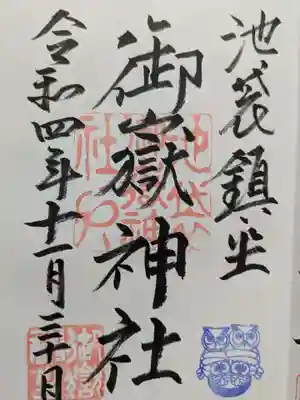 池袋鎮座
御嶽神社
令和四年十一月三十日